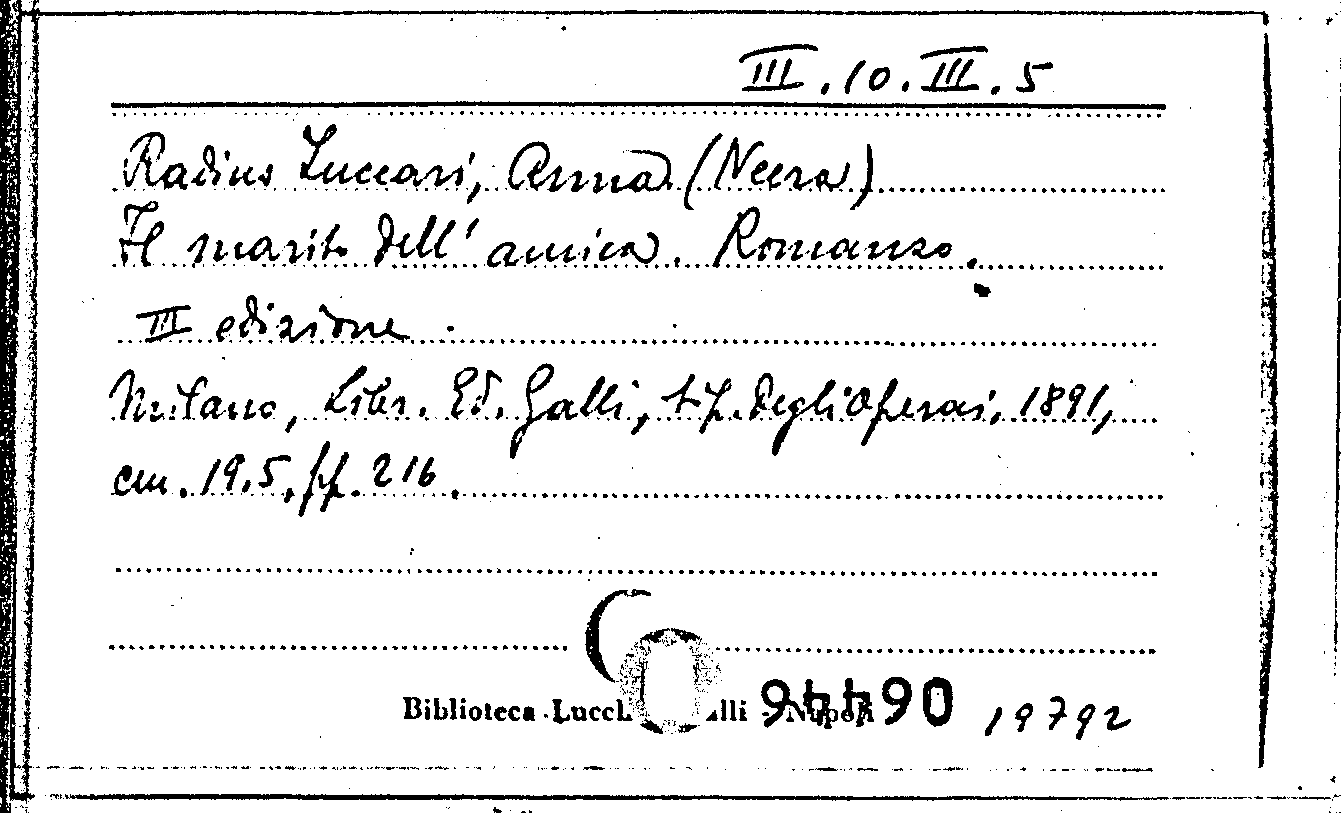 III.10.III.5
Radius Zuccari, Anna (Neera)
Il marito dell'amica. Romanzo.
III edizione.
Milano, Libr. Ed. Galli, tip. degli Operai, 1891,
cm. 19,5, pp. 216.
Biblioteca - Napoli 19792